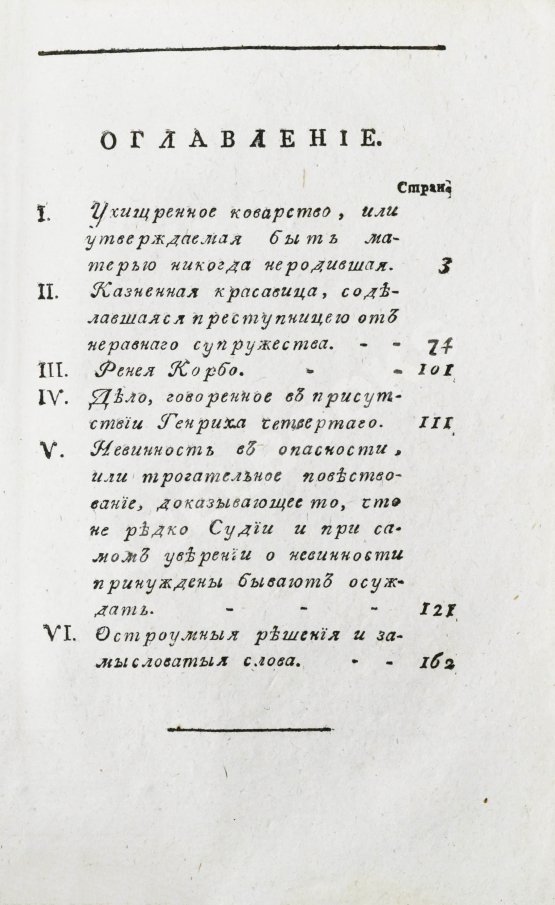 ОГЛАВЛЕНІЕ.
Стран.
I. Ухищренное коварство, или
утверждаемая быть ма-
терью никогда неродившая. 3
II. Казненная красавица, содѣ-
лавшаяся преступницею отъ
неравнаго супружества. - - 74
III. Ренея Корбо. - - 101
IV. Дѣло, говоренное въ присут-
ствіи Генриха четвертаго. 111
V. Невинность въ опасности,
или трогательное повѣство-
ваніе, доказывающее то, что
не рѣдко Судіи и при са-
момъ увѣреніи о невинности
принуждены бываютъ осуж-
дать. - - - 121
VI. Остроумныя рѣшенія и за-
мысловатыя слова. - - 162